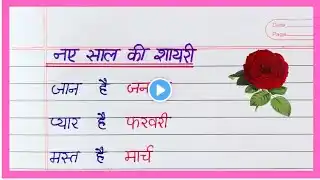 Date
Page
नए साल की शायरी
जान है
प्यार है फरवरी
मस्त है मार्च